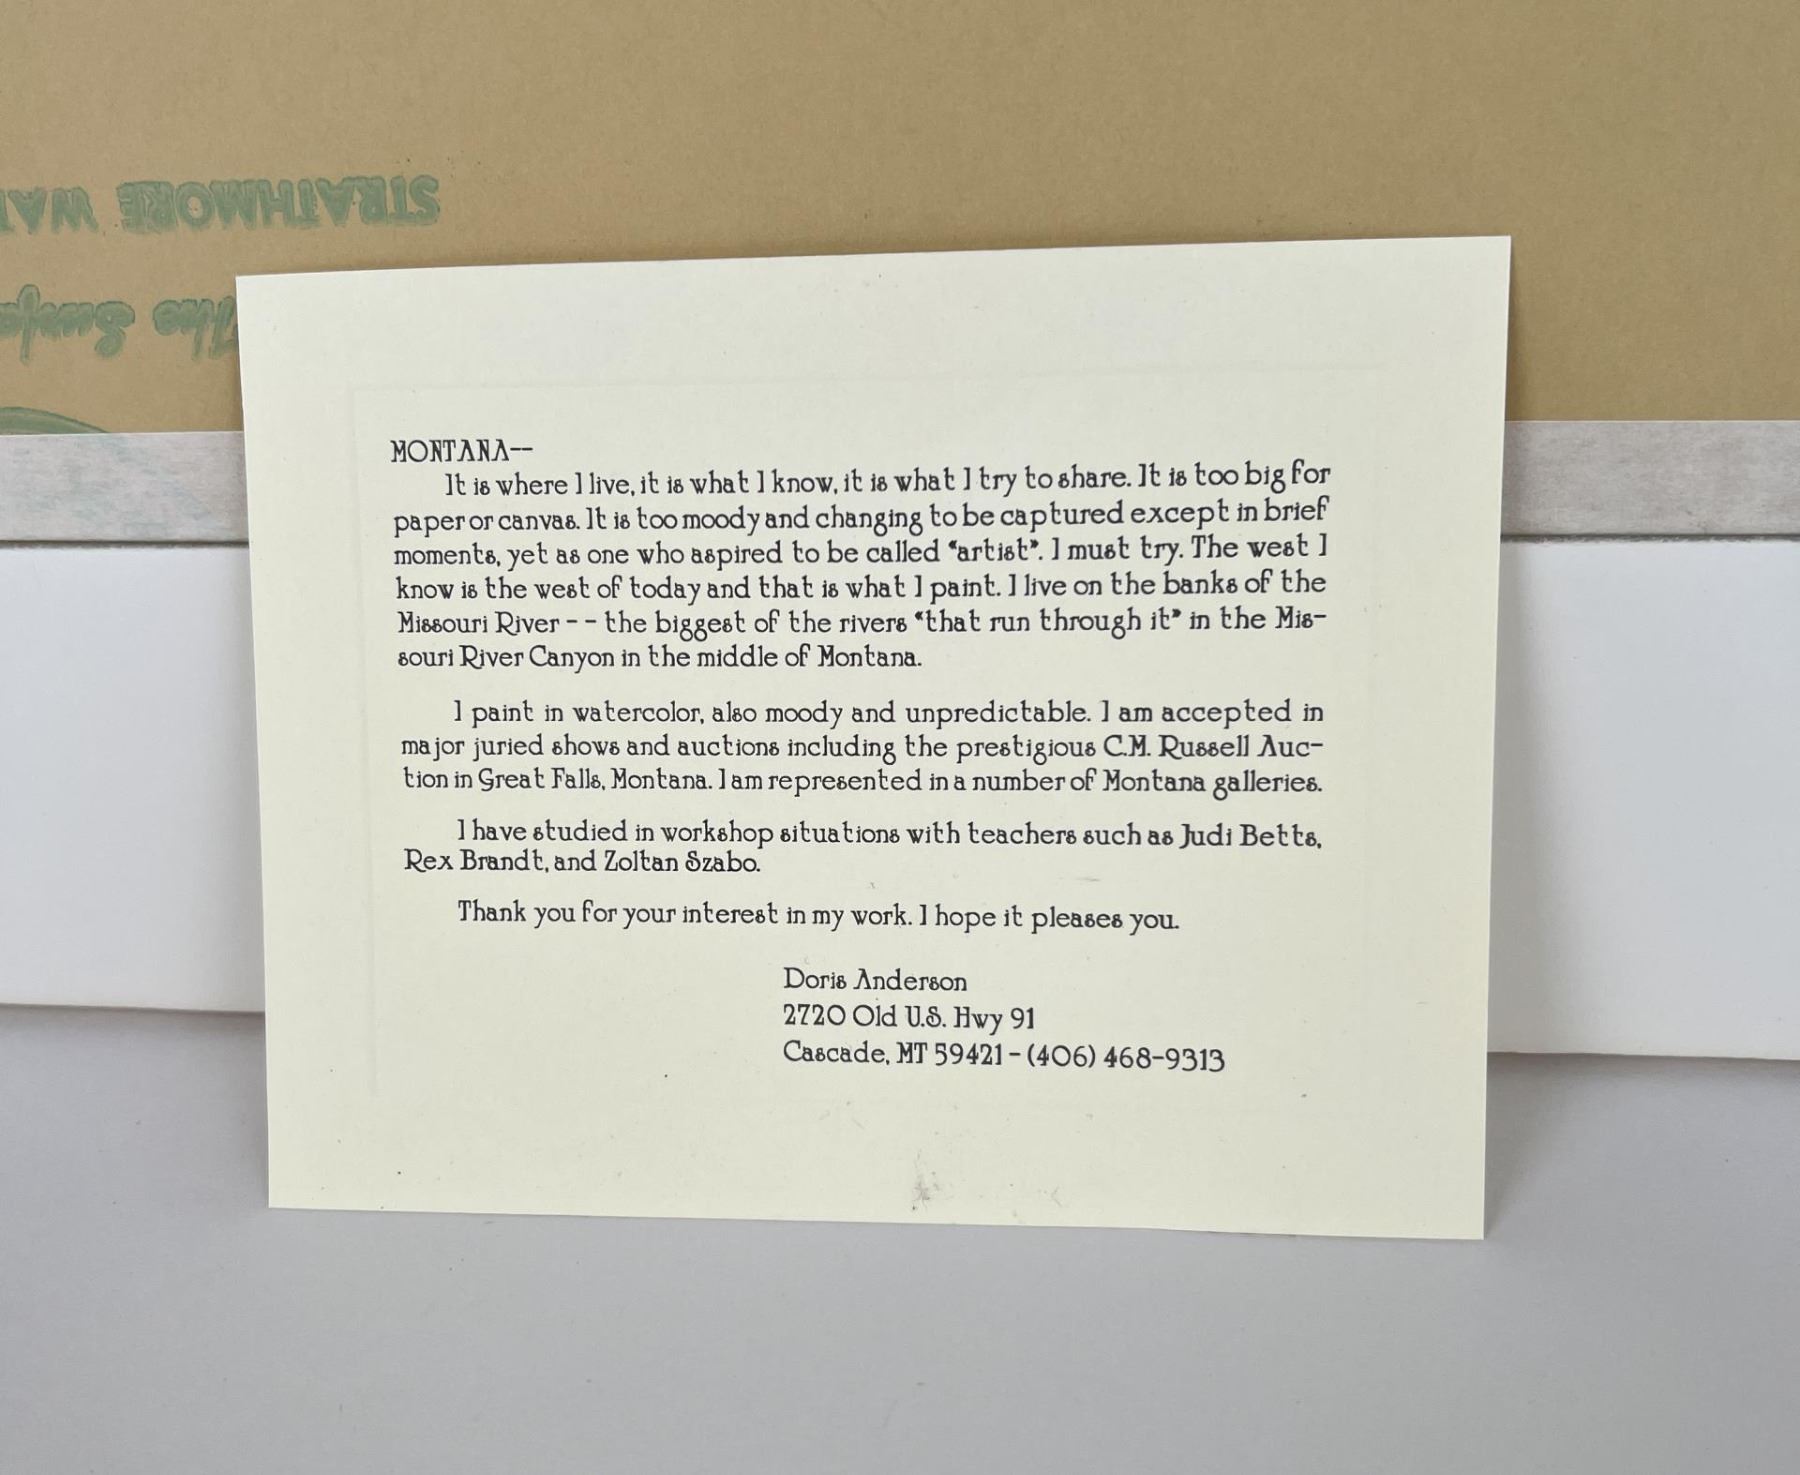 STRATHMORE WA
The Surfa
MONTANA--
It is where I live, it is what I know, it is what I try to share. It is too big for
paper or canvas. It is too moody and changing to be captured except in brief
moments, yet as one who aspired to be called "artist". I must try. The west I
know is the west of today and that is what I paint. I live on the banks of the
Missouri River -- the biggest of the rivers "that run through it" in the Mis-
souri River Canyon in the middle of Montana.
I paint in watercolor, also moody and unpredictable. I am accepted in
major juried shows and auctions including the prestigious C.M. Russell Auc-
tion in Great Falls, Montana. I am represented in a number of Montana galleries.
I have studied in workshop situations with teachers such as Judi Betts,
Rex Brandt, and Zoltan Szabo.
Thank you for your interest in my work. I hope it pleases you.
Doris Anderson
2720 Old U.S. Hwy 91
Cascade, MT 59421 - (406) 468-9313